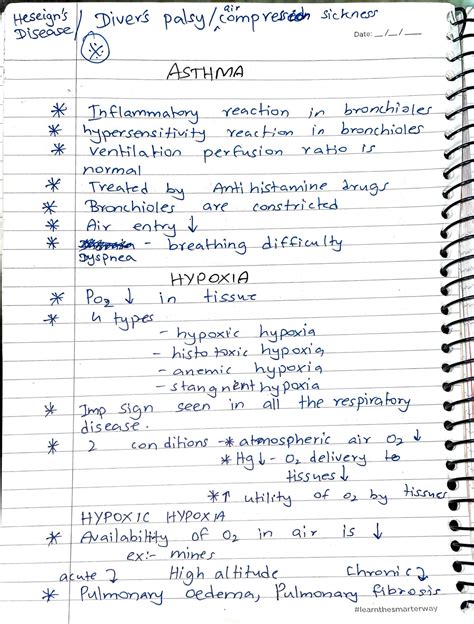 Heseign's Disease / Diver's palsy / air compression sickness
Date: __/__/__
ASTHMA
* Inflammatory reaction in bronchioles
* hypersensitivity reaction in bronchioles
* ventilation perfusion ratio is
normal
* Treated by Antihistamine drugs
* Bronchioles are constricted
* Air entry ↓
* Dyspnea - breathing difficulty
HYPOXIA
* Po2 ↓ in tissue
* 4 types
- hypoxic hypoxia
- histotoxic hypoxia
- anemic hypoxia
- stangnent hypoxia
* Imp sign seen in all the respiratory
disease.
* 2 conditions -* atmospheric air O2 ↓
* Hg↓ - O2 delivery to
tissues↓
*↑ utility of O2 by tissues
HYPOXIC HYPOXIA
* Availability of O2 in air is ↓
ex:- mines
acute ↴ High altitude Chronic ↴
* Pulmonary oedema, Pulmonary fibrosis
#learnthesmarterway